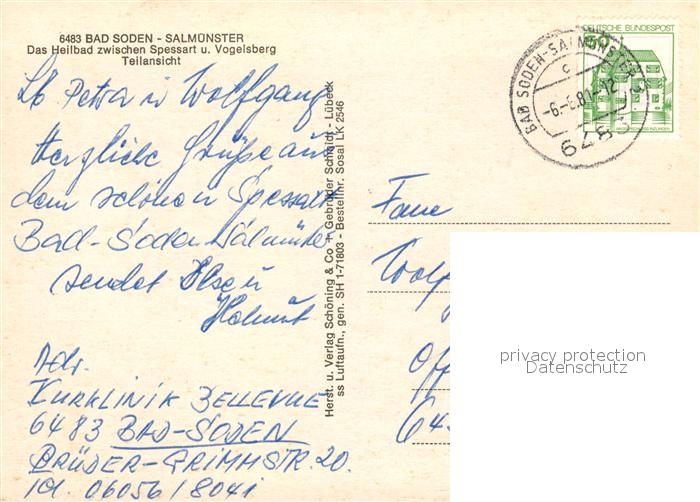 6483 BAD SODEN - SALMÜNSTER
Das Heilbad zwischen Spessart u. Vogelsberg
Teilansicht
Lb Petra u Wolfgang
Herzliche Grüße aus
dem schönen Spessart
Bad-Soden Salmünster
sendet Ilse u
Helmut
Adr.
KURKLINIK BELLEVUE
6483 BAD-SODEN
BRÜDER-GRIMMSTR 20.
Tel. 06056/8041
Herst. u. Verlag Schöning & Co + Gebrüder Schmidt - Lübeck
ss Luftaufn., gen. SH 1-71803 - Bestellnr. Sosal LK 2546
DEUTSCHE BUNDESPOST
50
BAD SODEN-SALMÜNSTER
c
-6.-6.81-12
6483
Wolfg
Off
64
privacy protection
Datenschutz